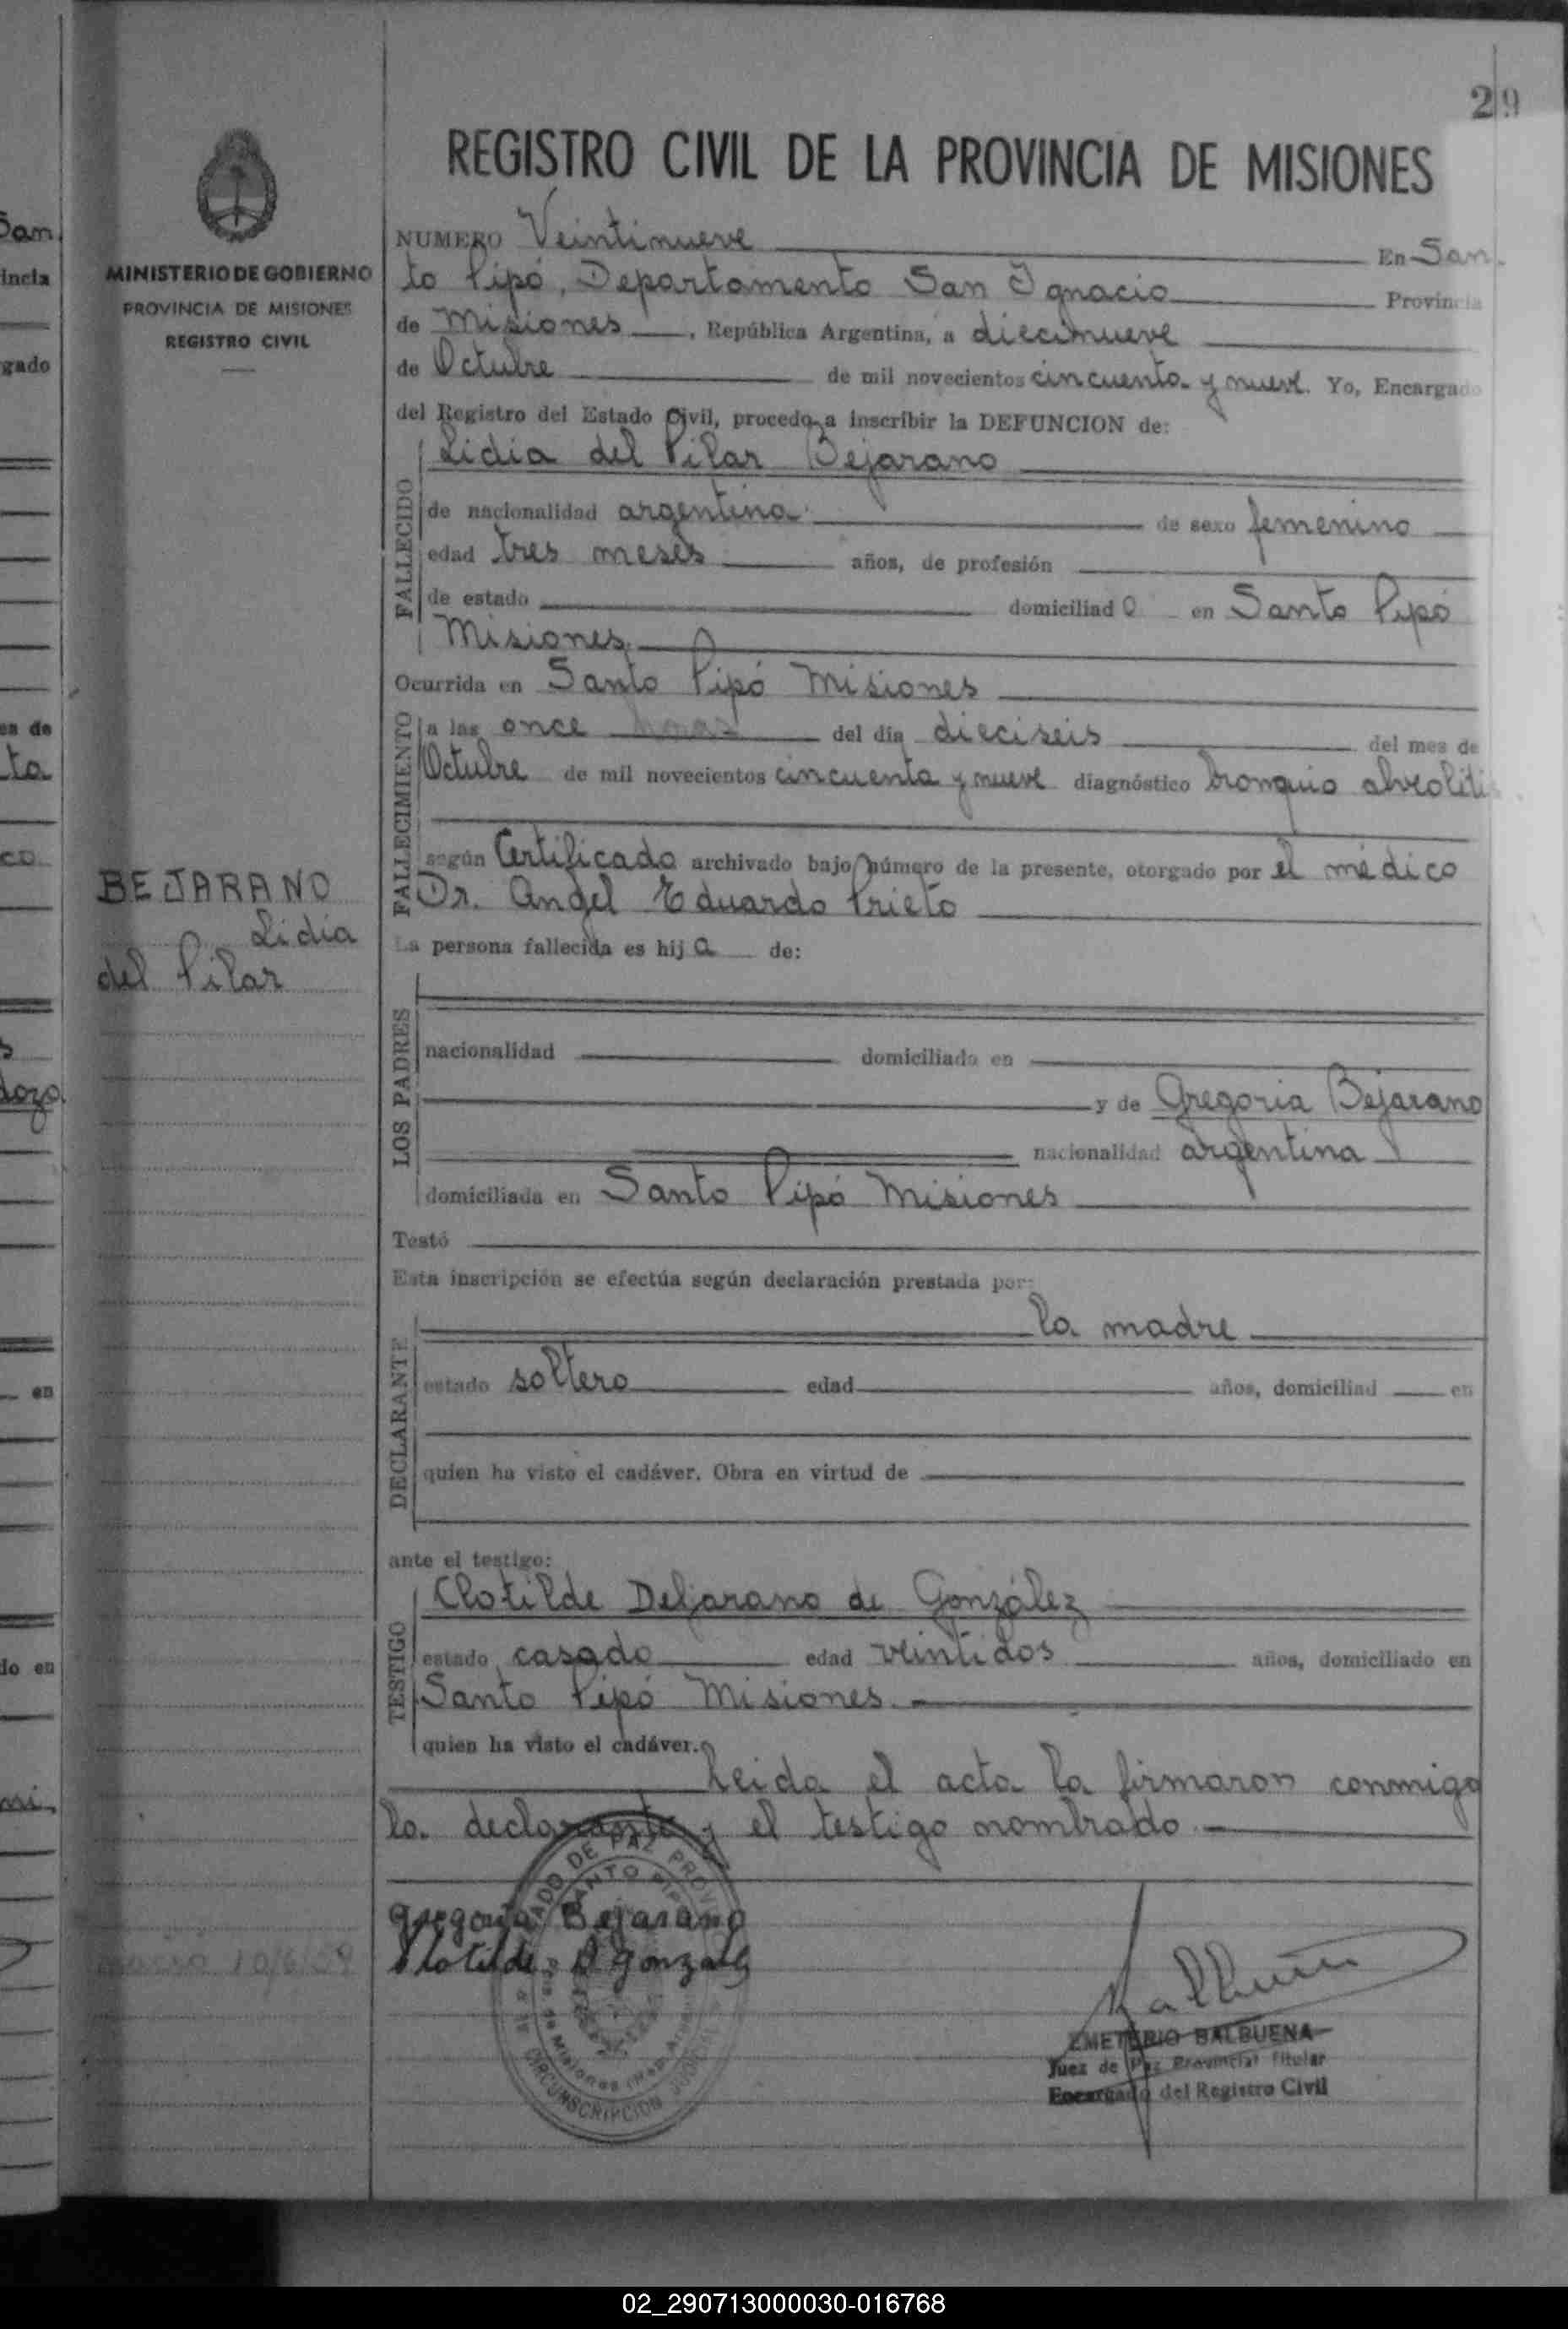 29
REGISTRO CIVIL DE LA PROVINCIA DE MISIONES
MINISTERIO DE GOBIERNO
PROVINCIA DE MISIONES
REGISTRO CIVIL
BEJARANO
Lidia
del Pilar
NUMERO Veintinueve En San
to Pipó, Departamento San Ignacio Provincia
de Misiones, República Argentina, a diecinueve
de Octubre de mil novecientos cincuenta y nueve. Yo, Encargado
del Registro del Estado Civil, procedo a inscribir la DEFUNCION de:
FALLECIDO
Lidia del Pilar Bejarano
de nacionalidad argentina de sexo femenino
edad tres meses años, de profesión
de estado domiciliad o en Santo Pipó
Misiones
Ocurrida en Santo Pipó Misiones
FALLECIMIENTO
a las once horas del día dieciseis del mes de
Octubre de mil novecientos cincuenta y nueve diagnóstico bronquio alveolitis
según Certificado archivado bajo número de la presente, otorgado por el médico
Dr. Angel Eduardo Prieto
La persona fallecida es hij a de:
LOS PADRES
nacionalidad domiciliado en
y de Gregoria Bejarano
nacionalidad argentina
domiciliada en Santo Pipó Misiones
Testó
Esta inscripción se efectúa según declaración prestada por:
DECLARANTE
la madre
estado soltero edad años, domiciliad en
quien ha visto el cadáver. Obra en virtud de
ante el testigo:
TESTIGO
Clotilde Dejarano de González
estado casado edad veintidos años, domiciliado en
Santo Pipó Misiones.
quien ha visto el cadáver.
Leida el acta la firmaron conmigo
la declarante y el testigo nombrado
Gregoria Bejarano
Clotilde B Gonzalez
EMETERIO BALBUENA
Juez de Paz Provincial Titular
Encargado del Registro Civil
02_290713000030-016768